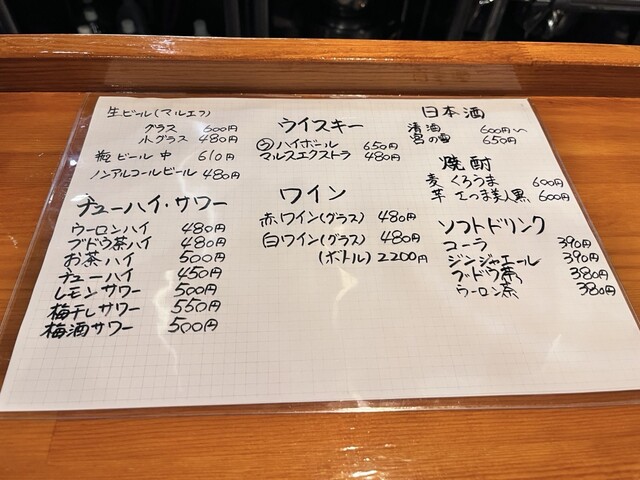 生ビール(マルエフ)
グラス 600円
小グラス 480円
瓶ビール 中 610円
ノンアルコールビール 480円
チューハイ・サワー
ウーロンハイ 480円
ブドウ茶ハイ 480円
お茶ハイ 500円
チューハイ 450円
レモンサワー 500円
梅干しサワー 550円
梅酒サワー 500円
ウイスキー
ハイボール 650円
マルスエクストラ 480円
ワイン
赤ワイン(グラス) 480円
白ワイン(グラス) 480円
(ボトル) 2200円
日本酒
清酒 600円~
宮の雪 650円
焼酎
麦 くろうま 600円
芋 さつま美人黒 600円
ソフトドリンク
コーラ 390円
ジンジャエール 390円
ブドウ茶 380円
ウーロン茶 380円